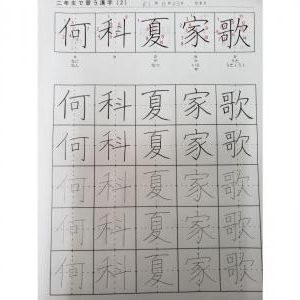 二年生で習う漢字 (2)
何 科 夏 家 歌
何 科 夏 家 歌
何 科 夏 家 歌
何 科 夏 家 歌
何 科 夏 家 歌
何 科 夏 家 歌